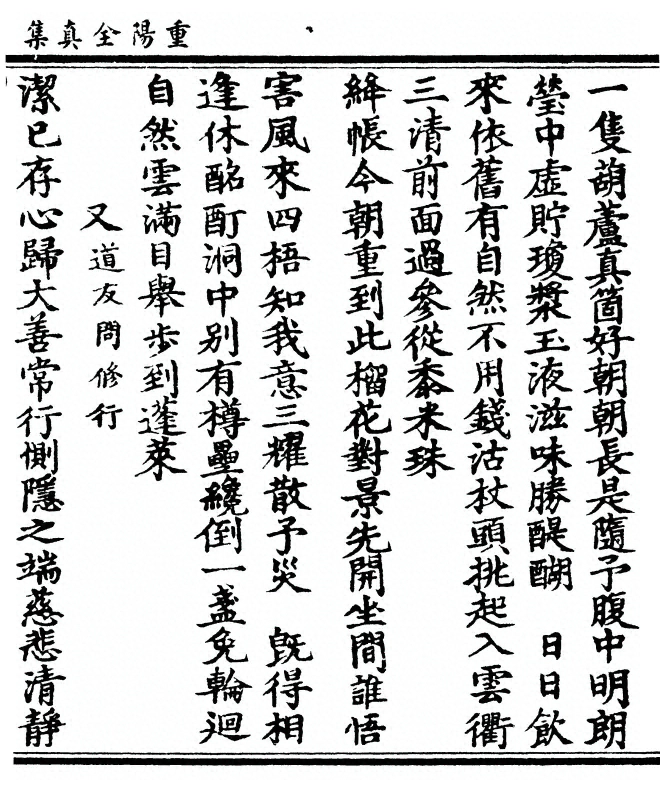 重陽全真集
一隻葫蘆真箇好朝朝長是隨予腹中明朗
瑩中虛貯瓊漿玉液滋味勝醍醐　日日飲
來依舊有自然不用錢沽杖頭挑起入雲衢
三清前面過參從黍米珠
絳帳今朝重到此榴花對景先開坐間誰悟
害風來四梧知我意三耀散予災　旣得相
逢休酩酊洞中別有樽罍纔倒一盞免輪迴
自然雲滿目舉步到蓬萊
又道友問修行
潔已存心歸大善常行惻隱之端慈悲清靜